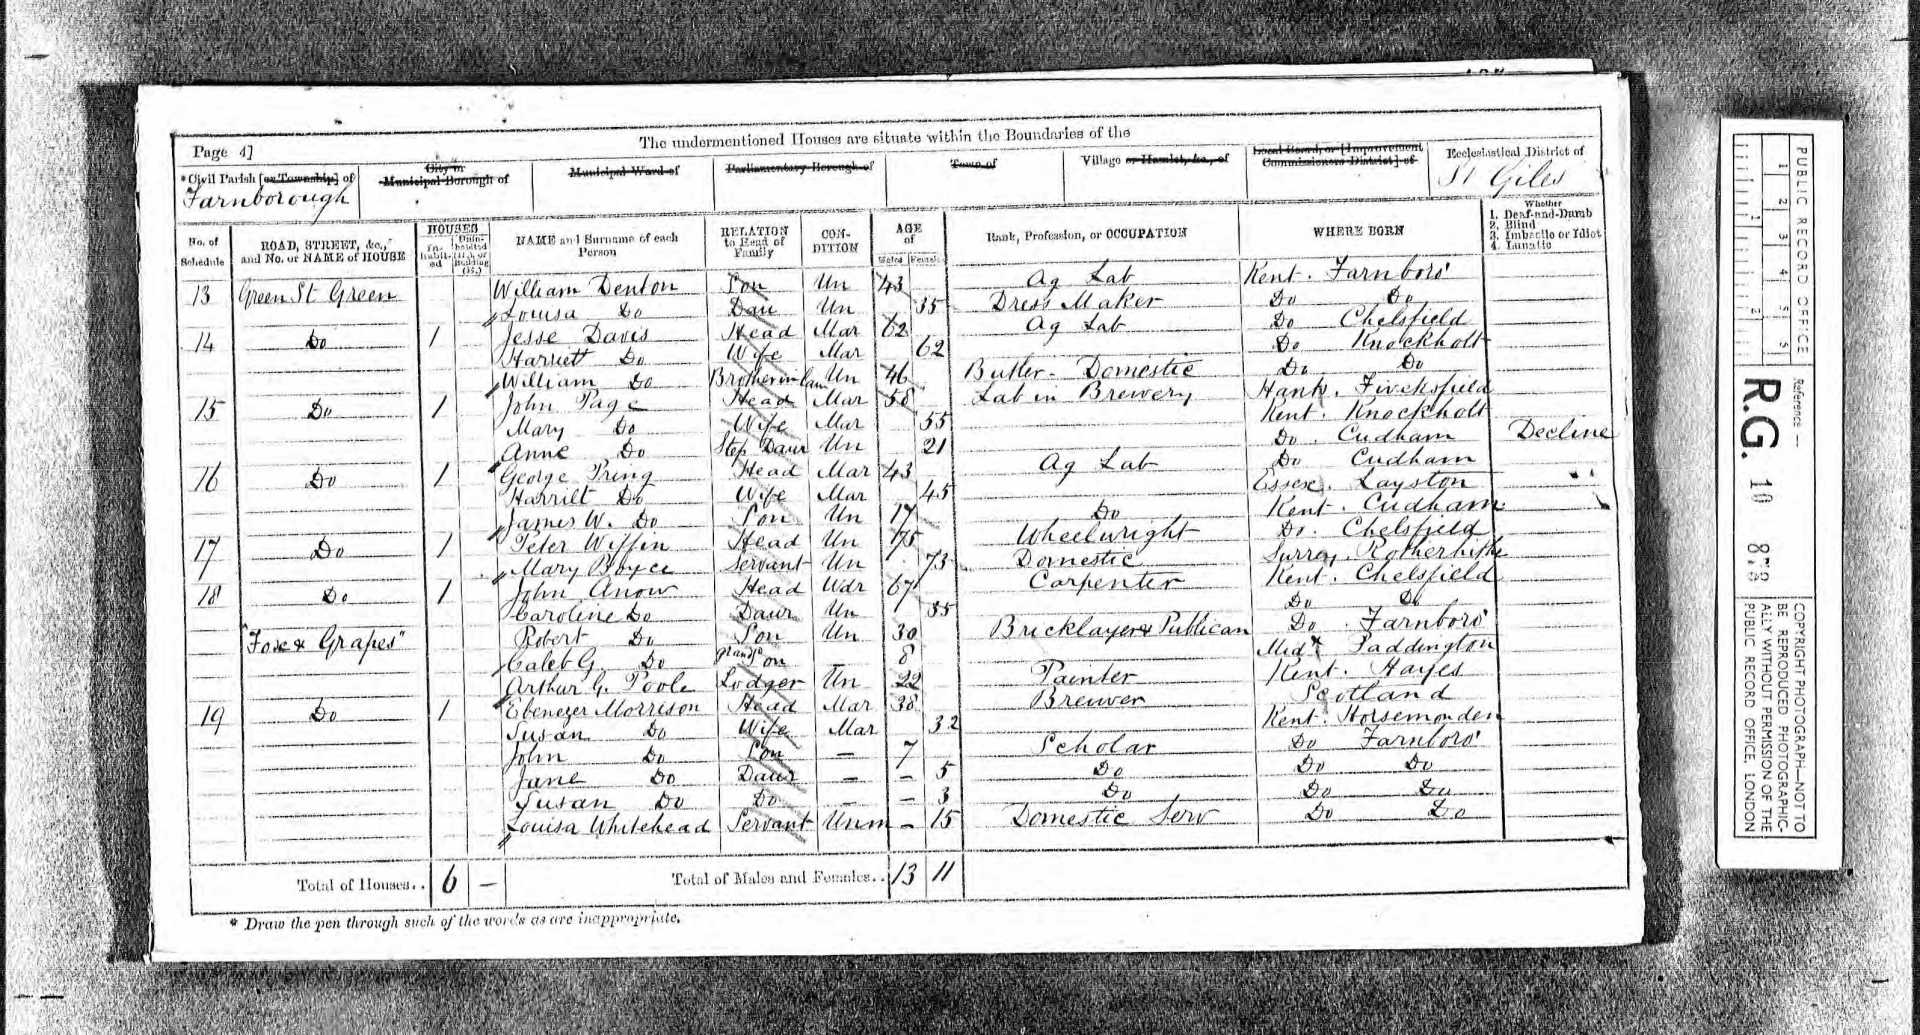 The undermentioned Houses are situate within the Boundaries of the
Page 4]
*Civil Parish [or Township] of
Farnborough
City or
Municipal Borough of
Municipal Ward of
Parliamentary Borough of
Town of
Village or Hamlet, &c., of
Local Board, or [Improvement
Commissioners District] of
Ecclesiastical District of
St Giles
No. of
Schedule
ROAD, STREET, &c.,
and No. or NAME of HOUSE
HOUSES
In-
habit-
ed
Unin-
habited
(U.), or
Building
(B.)
NAME and Surname of each
Person
RELATION
to Head of
Family
CON-
DITION
AGE
of
Males Females
Rank, Profession, or OCCUPATION
WHERE BORN
Whether
1. Deaf-and-Dumb
2. Blind
3. Imbecile or Idiot
4. Lunatic
13 Green St Green William Denton Son Un 43 Ag Lab Kent. Farnboro'
Louisa Do Dau Un 35 Dress Maker Do Do
14 Do 1 Jesse Davis Head Mar 62 Ag Lab Do Chelsfield
Harriett Do Wife Mar 62 Do Knockholt
William Do Brother in law Un 46 Butler - Domestic Do Do
15 Do 1 John Page Head Mar 58 Lab in Brewery Hants.
Mary Do Wife Mar 55 Kent. Knockholt
Anne Do Step Daur Un 21 Do. Cudham Decline
16 Do 1 George Pring Head Mar 43 Ag Lab Do Cudham
Harriet Do Wife Mar 45 Essex. Layston
James W. Do Son Un 17 Do Kent. Cudham
17 Do 1 Peter Wiffin Head Un 75 Wheelwright Do. Chelsfield
Mary Boyce Servant Un 73 Domestic Surrey. Rotherhithe
18 Do 1 John Anow Head Wdr 67 Carpenter Kent. Chelsfield
Caroline Do Daur Un 35 Do Do
"Fox & Grapes" Robert Do Son Un 30 Bricklayer & Publican Do. Farnboro'
Caleb G. Do Grandson 8 Midx Paddington
Arthur G. Poole Lodger Un 22 Painter Kent. Hayes
19 Do 1 Ebenezer Morrison Head Mar 38 Brewer Scotland
Susan Do Wife Mar 32 Kent. Horsemonden
John Do Son — 7 Scholar Do Farnboro'
Jane Do Daur — - 5 Do Do Do
Susan Do Do — - 3 Do Do Do
Louisa Whitehead Servant Unm - 15 Domestic Serv Do Do
Total of Houses.. 6 — Total of Males and Females.. 13 11
* Draw the pen through such of the words as are inappropriate.
PUBLIC RECORD OFFICE
1 2 3 4 5 6
1 2
Reference:—
R.G. 10 873
COPYRIGHT PHOTOGRAPH—NOT TO
BE REPRODUCED PHOTOGRAPHIC-
ALLY WITHOUT PERMISSION OF THE
PUBLIC RECORD OFFICE, LONDON